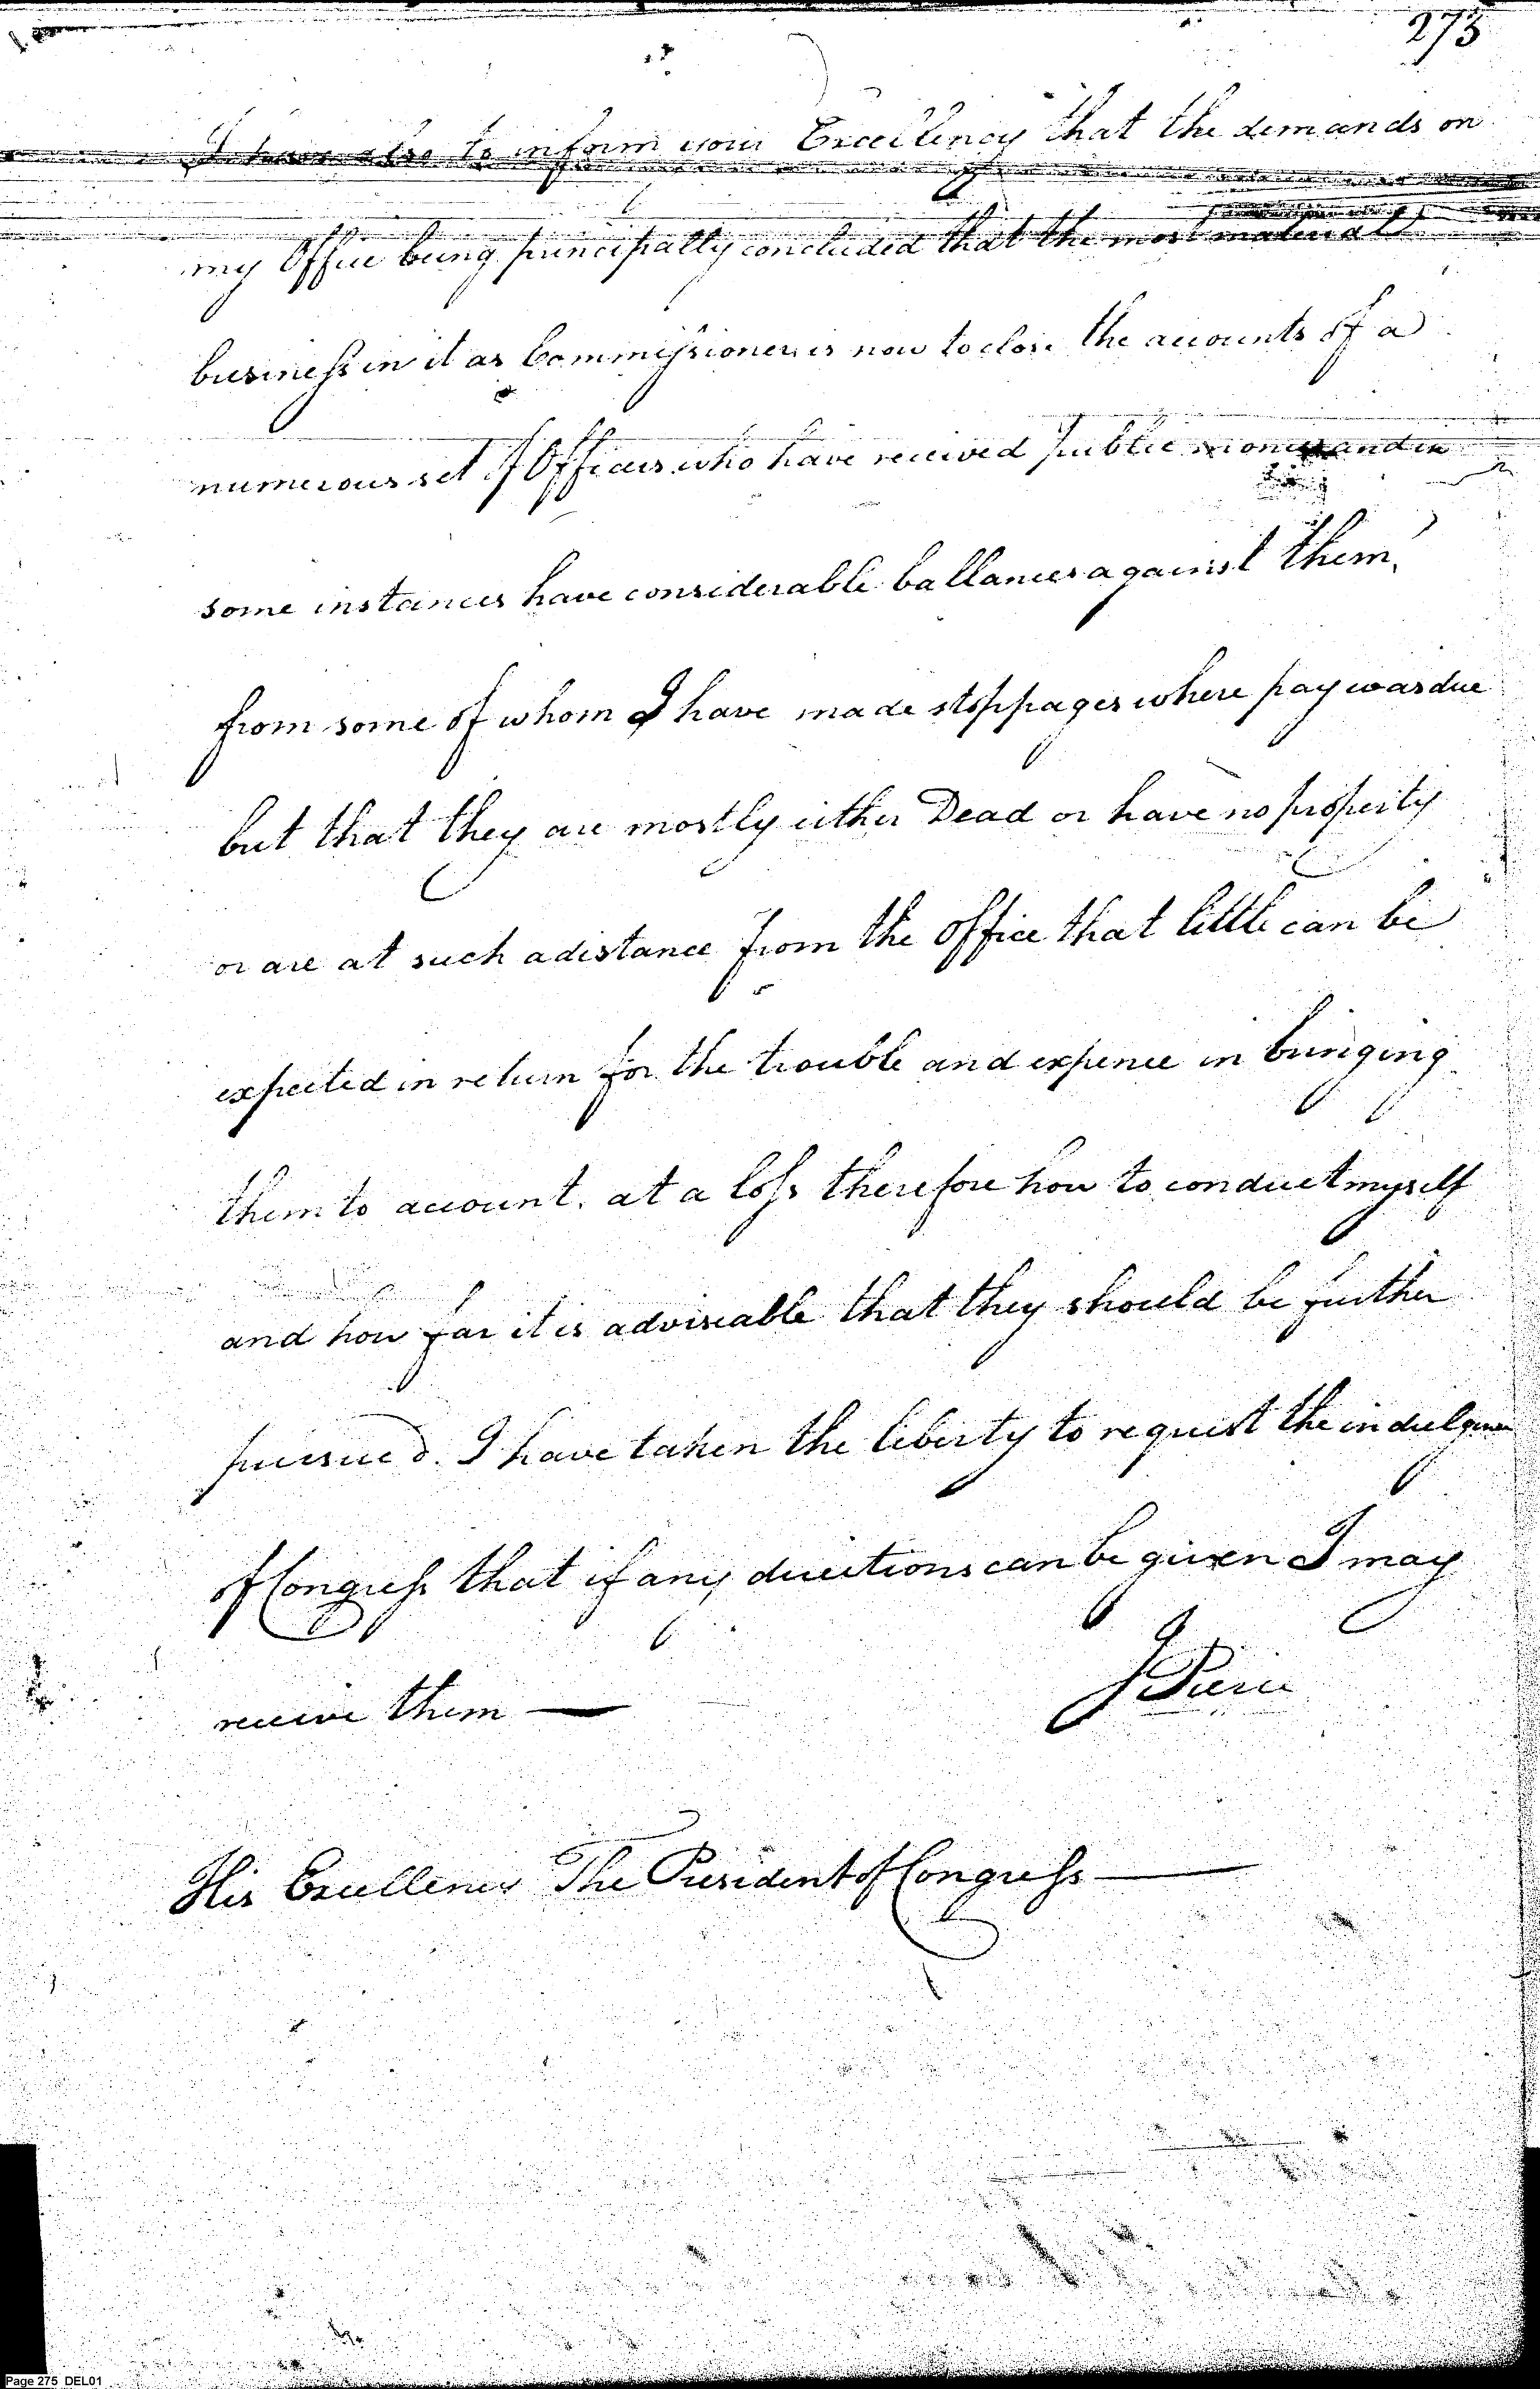 273
I have also to inform your Excellency that the demands on
my Office being principally concluded that the most material
business in it as Commissioner is now to close the accounts of a
numerous set of Officers who have received public monies and in
some instances have considerable ballances against them,
from some of whom I have made stoppages where pay was due
but that they are mostly either Dead or have no property
or are at such a distance from the Office that little can be
expected in return for the trouble and expence in bringing
them to account. at a loss therefore how to conduct myself
and how far it is adviseable that they should be further
pursued. I have taken the liberty to request the indulgence
of Congress that if any directions can be given I may
receive them — J Pierce
His Excellency The President of Congress —
Page 275 DEL01